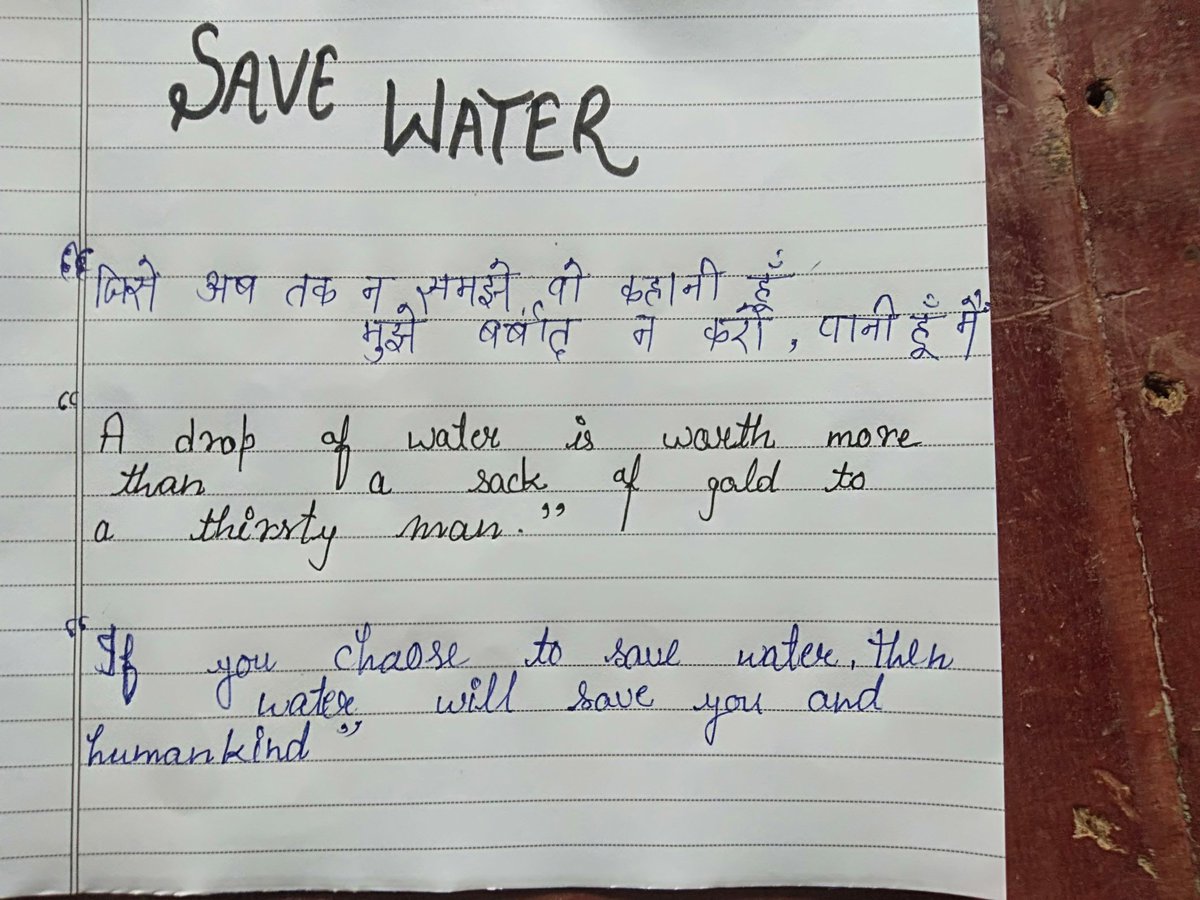 SAVE WATER
“जिसे अब तक न समझे वो कहानी हूँ
मुझे बर्बाद न करो, पानी हूँ मैं"
“A drop of water is worth more
than a sack of gold to
a thirsty man.”
“If you choose to save water, then
water will save you and
humankind”